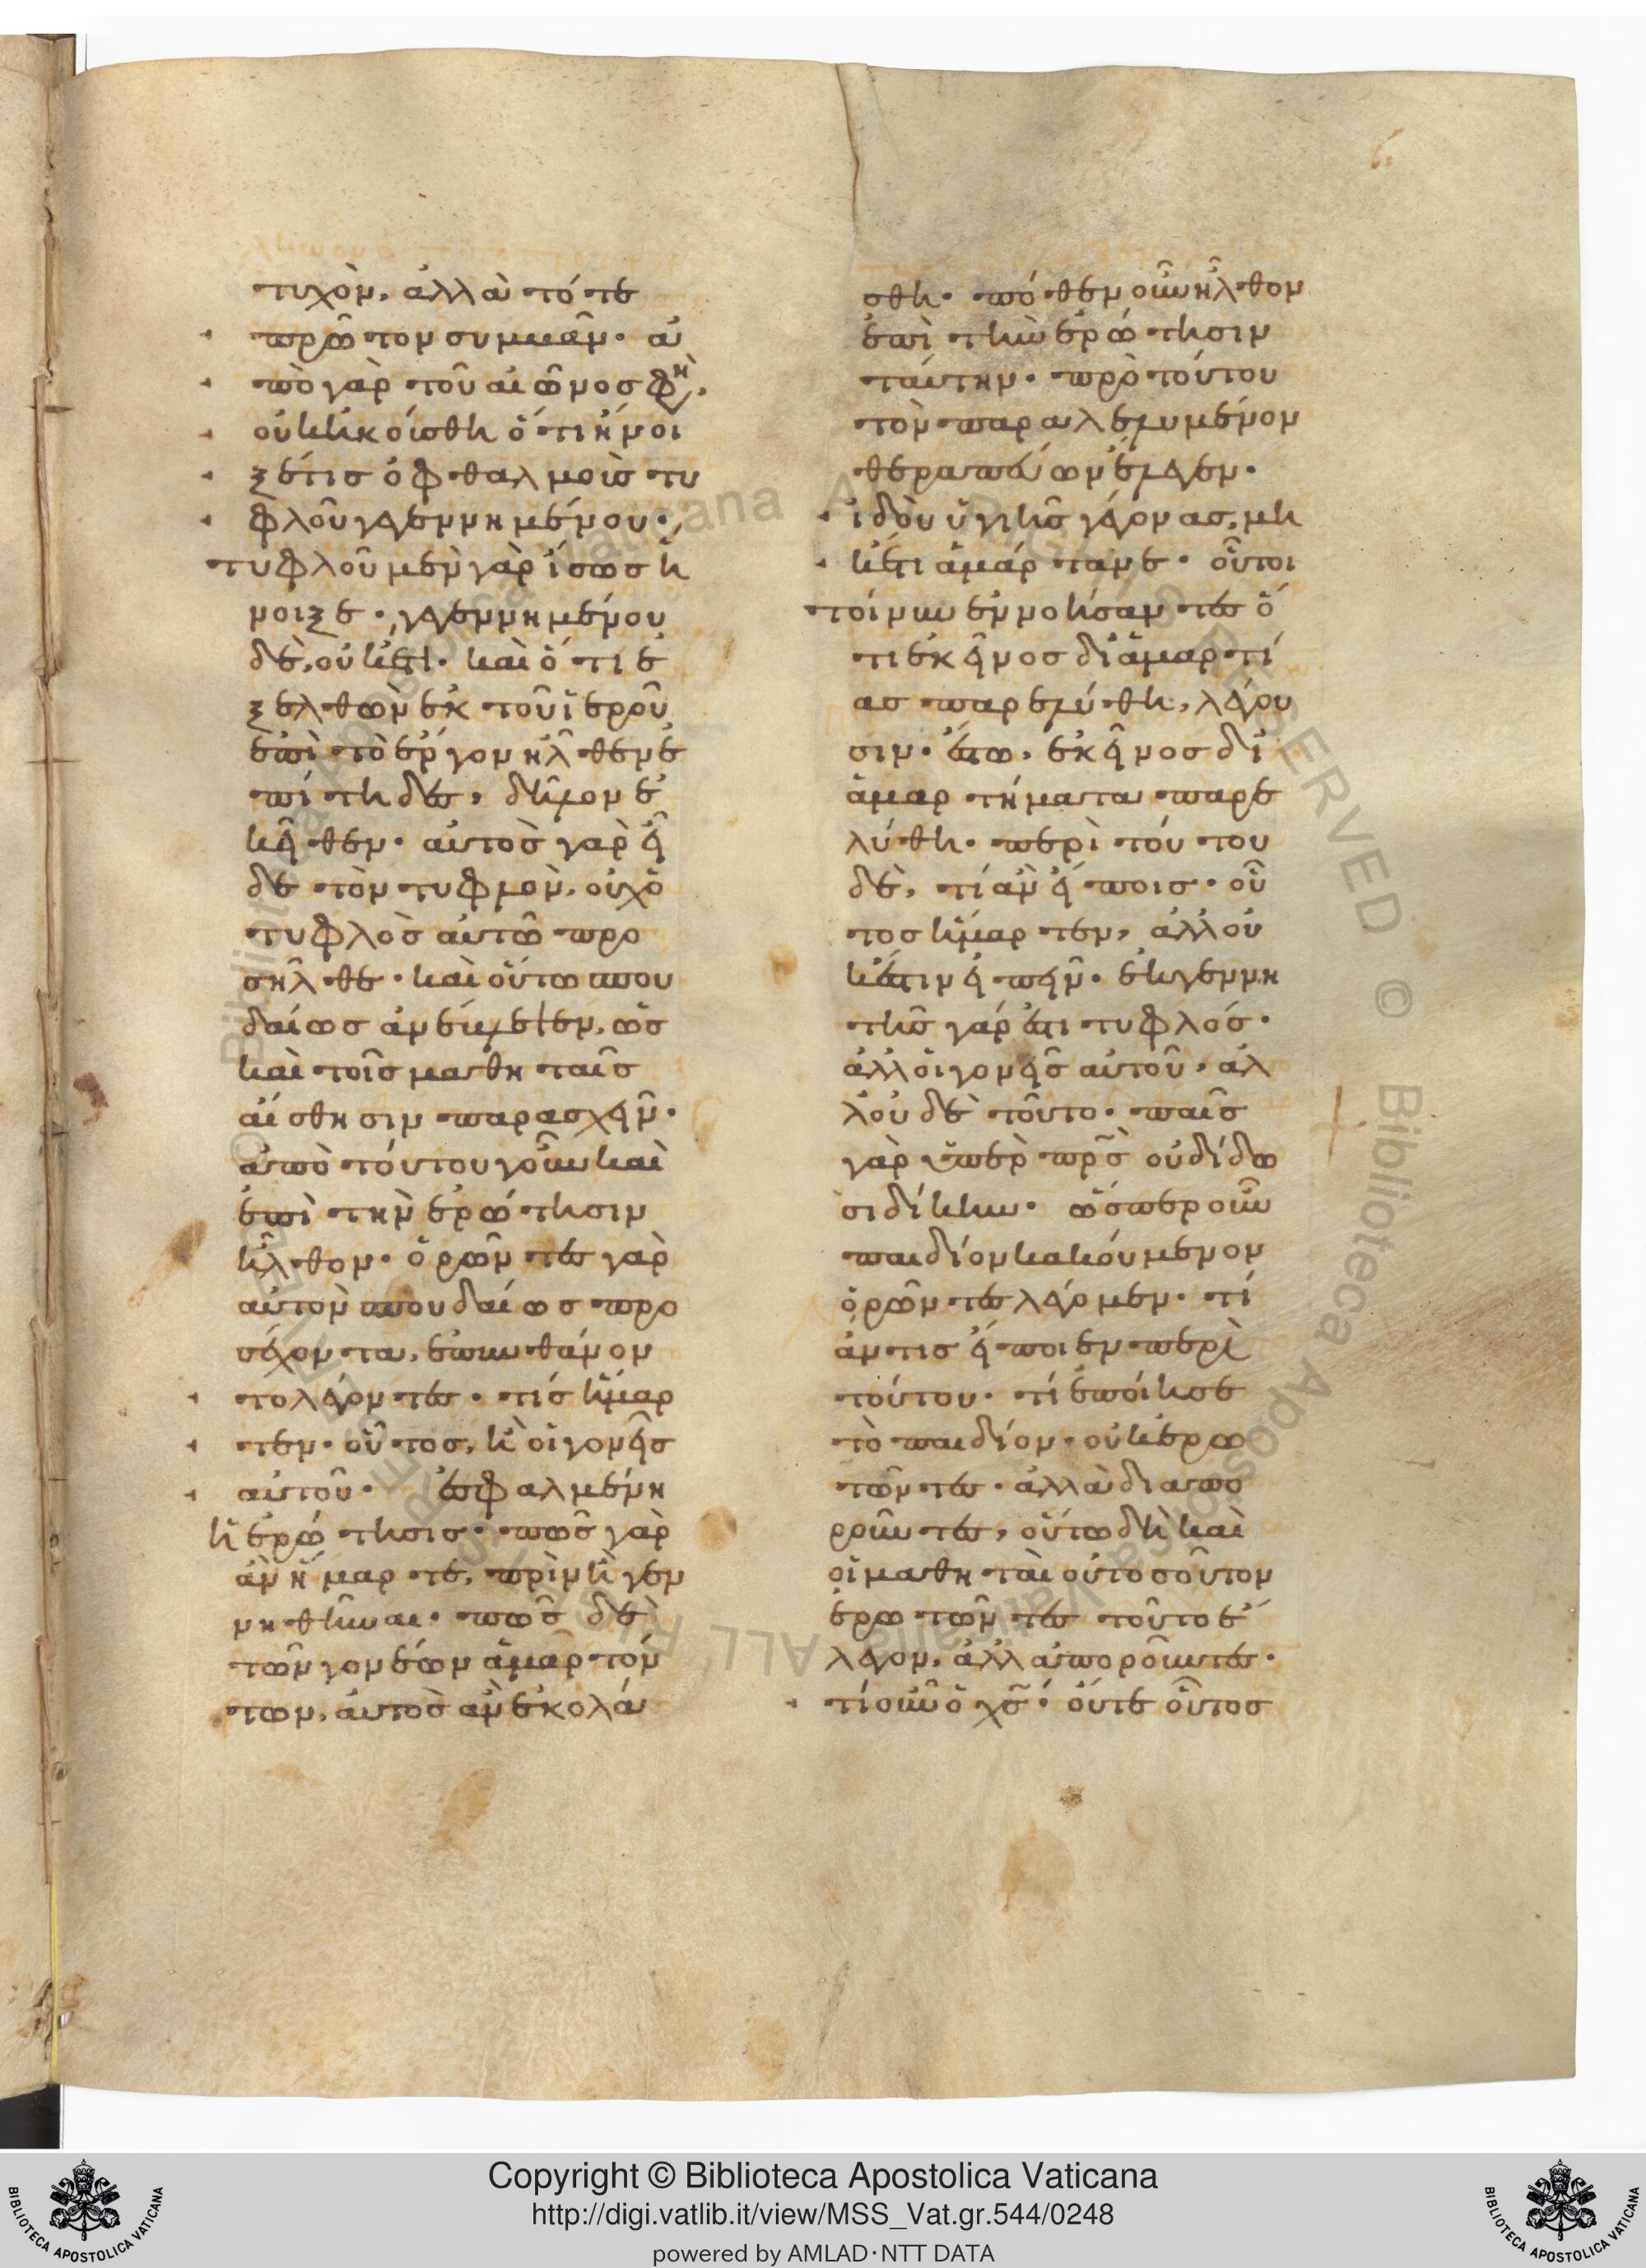 τυχὸν, ἀλλὰ τότε
πρῶτον συμβὰν· ἀ
πὸ γὰρ τοῦ αἰῶνος φη,
οὐκ ἠκούσθη ὅτι ἤνοι
ξέ τις ὀφθαλμοὺς τυ
φλοῦ γεγεννημένου·
τυφλοῦ μὲν γὰρ ἴσως ἤ
νοιξε· γεγεννημένου
δὲ, οὐκέτι· καὶ ὅτι ἐ
ξελθὼν ἐκ τοῦ ἱεροῦ
ἐπὶ τὸ ἔργον ἦλθεν ἐ
πίτηδες, δῆλον ἐ
κεῖθεν· αὐτὸς γὰρ εἶ
δε τὸν τυφλὸν, οὐχ ὁ
τυφλὸς αὐτῷ προ
σῆλθε· καὶ οὕτω σπου
δαίως ἀνέβλεψεν, ὡς
καὶ τοῖς μαθηταῖς
αἴσθησιν παρασχεῖν·
ἀπὸ τούτου γοῦν καὶ
ἐπὶ τὴν ἐρώτησιν
ἦλθον· ὁρῶντες γὰρ
αὐτὸν σπουδαίως προ
σέχοντα, ἐπυνθάνον
το λέγοντες· τίς ἥμαρ
τεν· οὗτος, ἢ οἱ γονεῖς
αὐτοῦ· ἐσφαλμένη
ἡ ἐρώτησις· πῶς γὰρ
ἂν ἥμαρτε, πρὶν ἢ γεν
νηθῆναι· πῶς δὲ
τῶν γονέων ἁμαρτόν
των, αὐτὸς ἂν ἐκολά
σθη· πόθεν οὖν ἦλθον
ἐπὶ τὴν ἐρώτησιν
ταύτην· πρὸ τούτου
τὸν παραλελυμένον
θεραπεύων ἔλεγεν·
ἰδοὺ ὑγιὴς γέγονας, μη
κέτι ἁμάρτανε· οὗτοι
τοίνυν ἐννοήσαντες ὅ
τι ἐκεῖνος δι ἁμαρτί
ας παρελύθη, λέγου
σιν· ἔστω, ἐκεῖνος δι
ἁμαρτήματα παρε
λύθη· περὶ τούτου
δὲ, τί ἂν εἴποις· οὗ
τος ἥμαρτεν, ἀλλ οὐ
κ ἔστιν εἰπεῖν· ἐκ γεννη
τῆς γάρ ἐστι τυφλός·
ἀλλ οἱ γονεῖς αὐτοῦ· ἀλ
λ οὐδὲ τοῦτο· παῖς
γὰρ ὑπὲρ πρς οὐ δίδω
σι δίκην· ὥσπερ οὖν
παιδίον κακούμενον
ὁρῶντες λέγομεν· τί
ἄν τις εἴποι ἐν περὶ
τούτου· τί ἐποίησε
τὸ παιδίον· οὐκ ἐρω
τῶντες· ἀλλὰ διαπο
ροῦντες, οὕτω δὴ καὶ
οἱ μαθηταὶ οὐ τοσοῦτον
ἐρωτῶντες τοῦτο ἔ
λεγον, ἀλλ ἀποροῦντες·
τί οὖν ὁ χς· οὔτε οὗτος
Copyright © Biblioteca Apostolica Vaticana
http://digi.vatlib.it/view/MSS_Vat.gr.544/0248
powered by AMLAD·NTT DATA